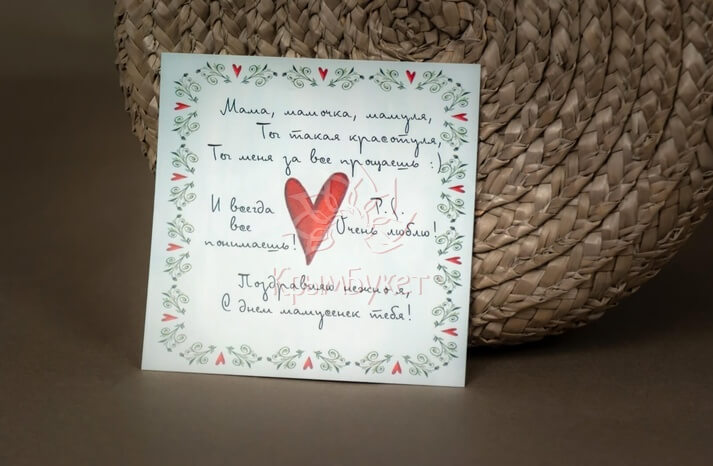 Мама, мамочка, мамуля,
Ты такая красотуля,
Ты меня за все прощаешь :)
И всегда
все
понимаешь!
P.S.
Очень люблю!
Поздравляю нежно я,
С днем мамусенек тебя!
Крымбукет